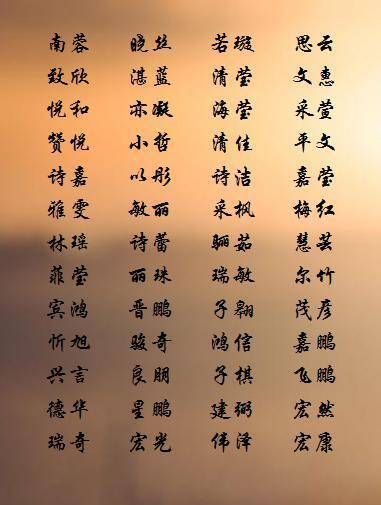 南蓉 晓丝 若璇 思云
致欣 湛蓝 清莹 文惠
悦和 亦凝 海莹 采萱
赞悦 小哲 清佳 平文
诗嘉 以彤 诗洁 嘉莹
雅雯 敏丽 采枫 梅红
林瑶 诗蕾 骊茹 慧芸
菲莹 丽珠 瑞敏 尔竹
宾鸿 晋鹏 子翱 茂彦
忻旭 骏奇 鸿信 嘉鹏
兴言 良朋 子棋 飞鹏
德华 星鹏 建弼 宏然
瑞奇 宏光 伟泽 宏康